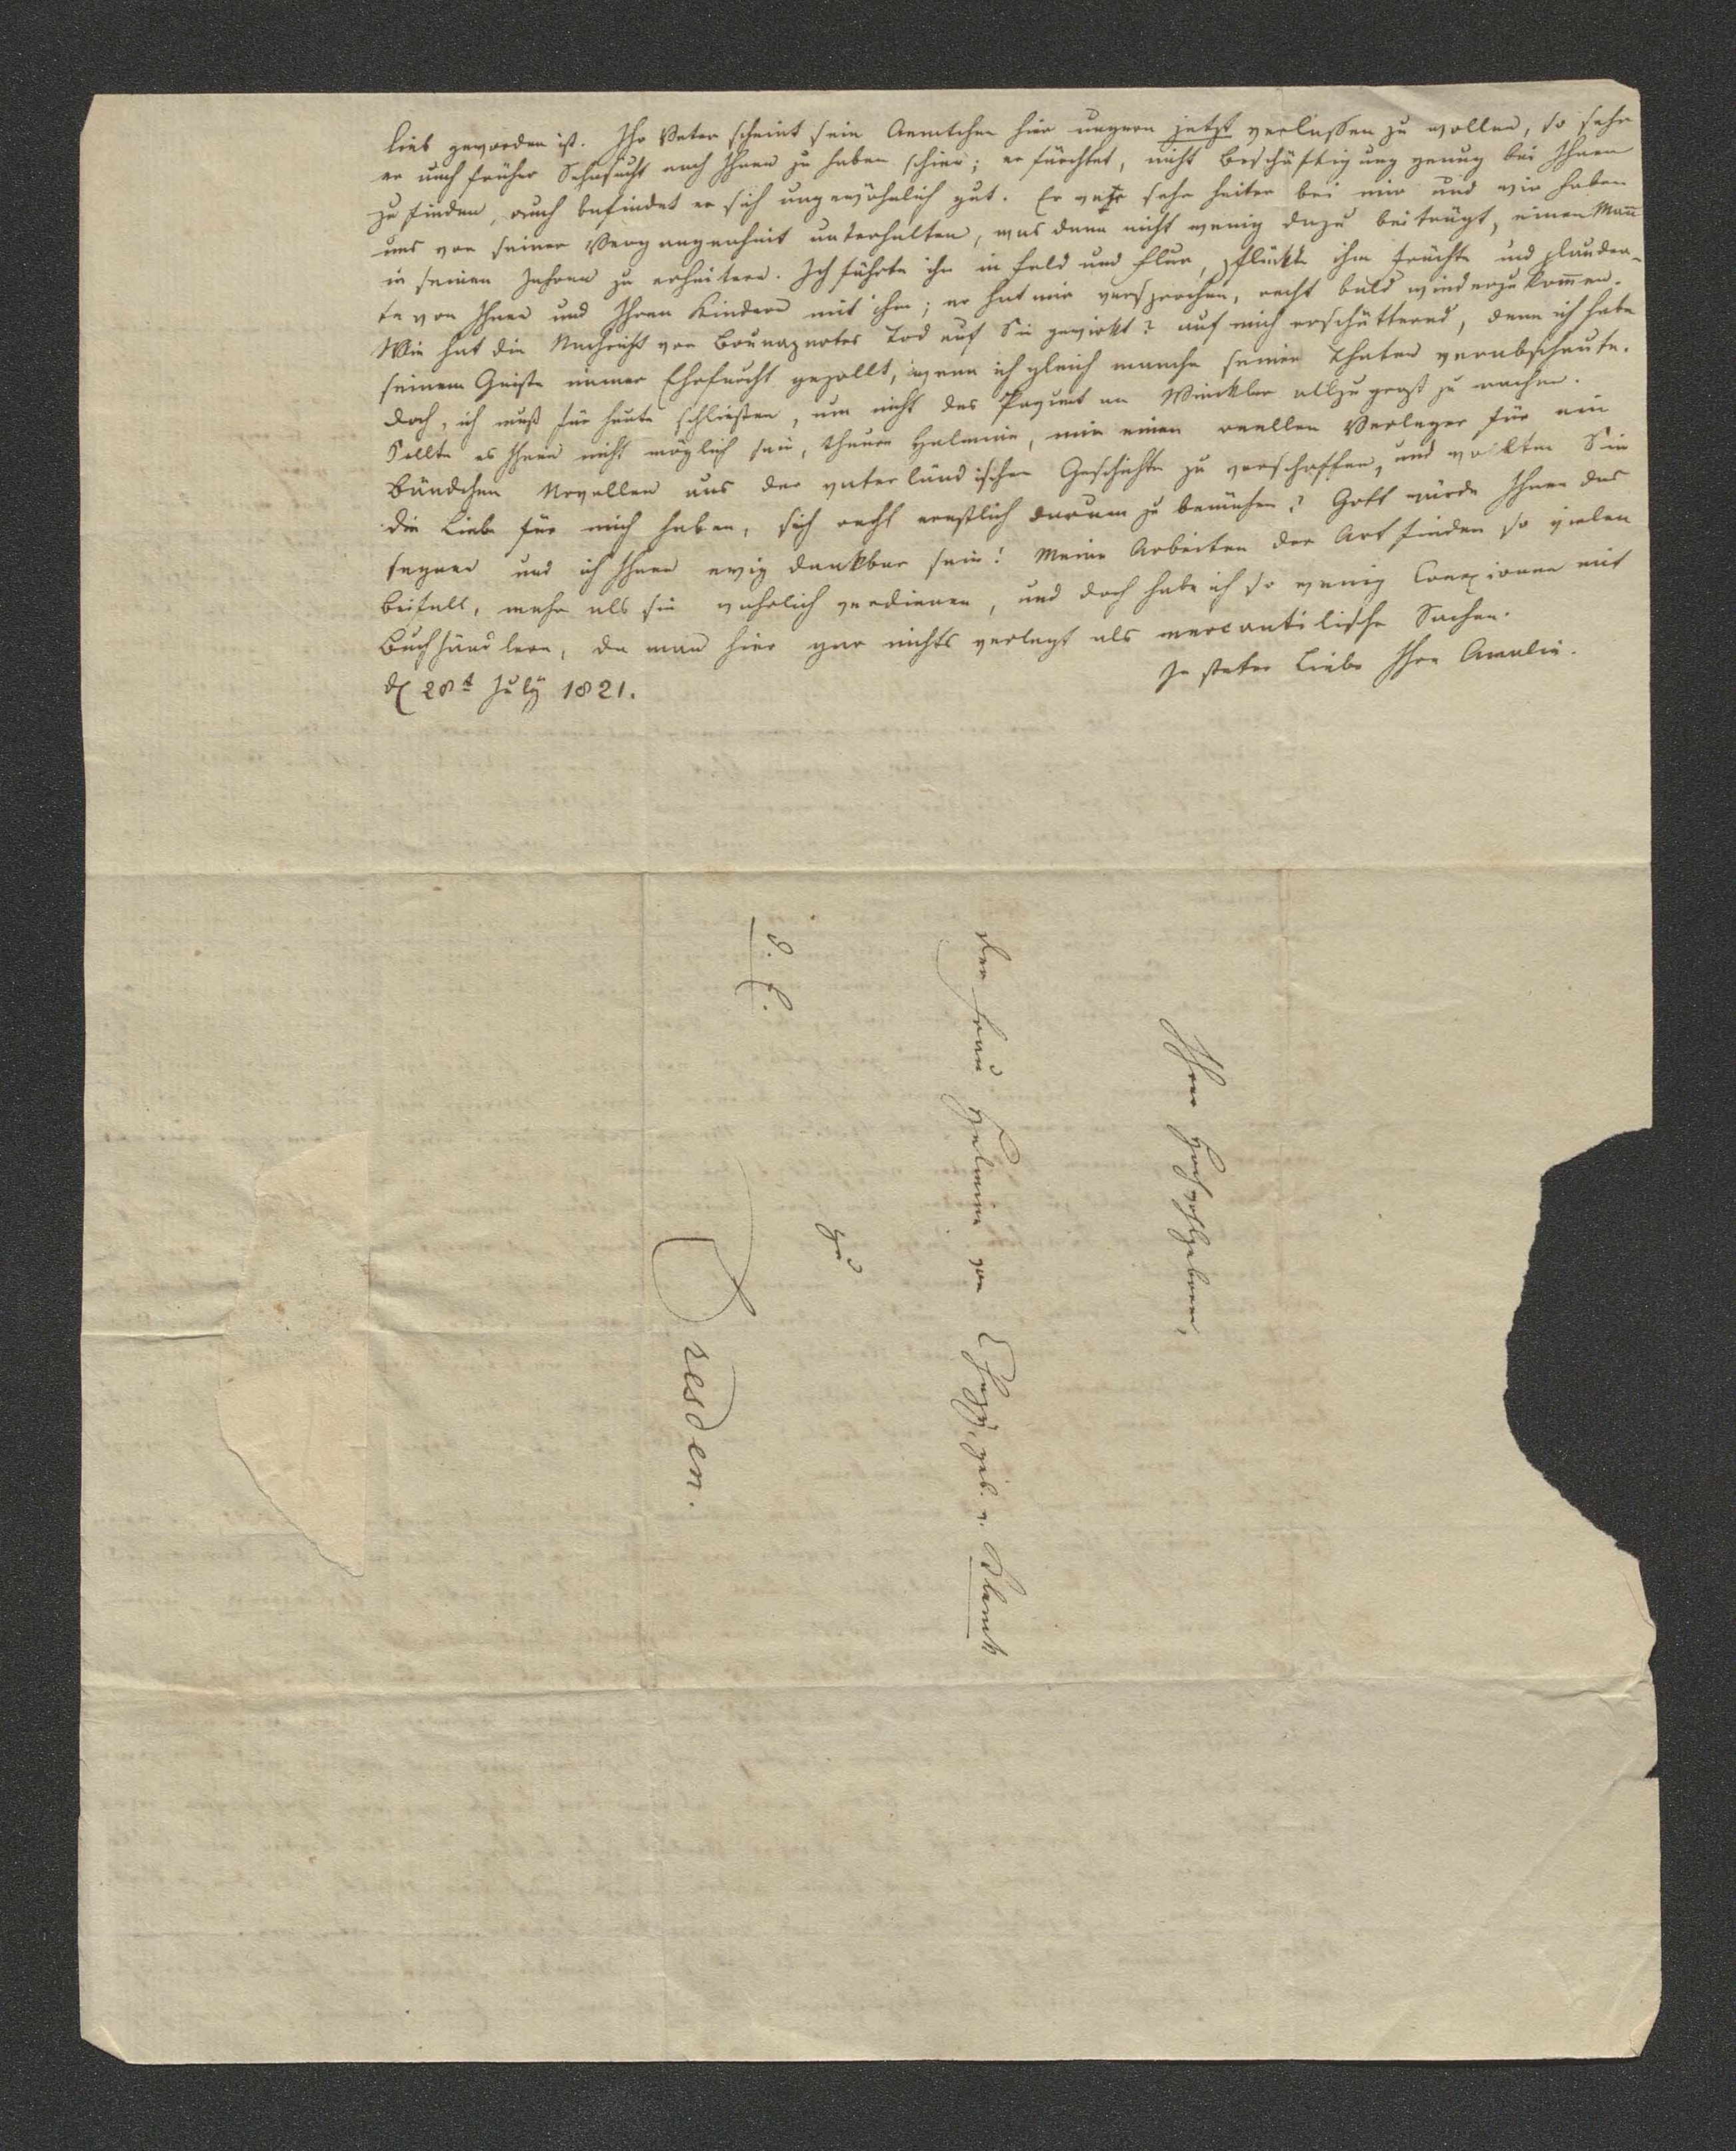 lieb geworden ist. Ihr Vater scheint sein Aemtchen hier ungern jetzt verlassen zu wollen, so sehr
er auch früher Sehnsucht nach Ihnen zu haben schien; er fürchtet, nicht Beschäftigung genug bei Ihnen
zu finden, auch befindet er sich ungewöhnlich gut. Er war sehr heiter bei mir und wir haben
uns von seiner Vergangenheit unterhalten, was denn nicht wenig dazu beiträgt, einen Mañ
in seinen Jahren zu erheitern. Ich führte ihn in Feld und Flur, pflückte ihm Früchte und plauder-
te von Ihnen und Ihren Kindern mit ihm; er hat mir versprochen, recht bald wiederzukom̃en.
Wie hat die Nachricht von Bounapartes Tod auf Sie gewirkt? auf mich erschütternd, denn ich habe
seinem Geiste immer Ehrfurcht gezollt, wenn ich gleich manche seiner Thaten verabscheute.
Doch, ich muß für heute schließen, um nicht das Paquet an Winckler allzugroß zu machen.
Sollte es Ihnen nicht möglich sein, theure Helmine, mir einen reellen Verleger für ein
Bändchen Novellen aus der vaterländischen Geschichte zu verschaffen, und wollten Sie
die Liebe für mich haben, sich recht ernstlich darum zu bemühen? Gott würde Ihnen das
segnen und ich Ihnen ewig dankbar sein! Meine Arbeiten der Art finden so vielen
Beifall, mehr als sie wahrlich verdienen, und doch habe ich so wenig Conexionen mit
Buchhändlern, da man hier gar nichts verlegt als mercantilische Sachen.
In steter Liebe Ihre Amalie.
d 28t July 1821.
Ihrer Hochwohlgeboren,
der Frau Helmine von Chezy, geb. v. Klenck
zu
d. E.
Dresden.